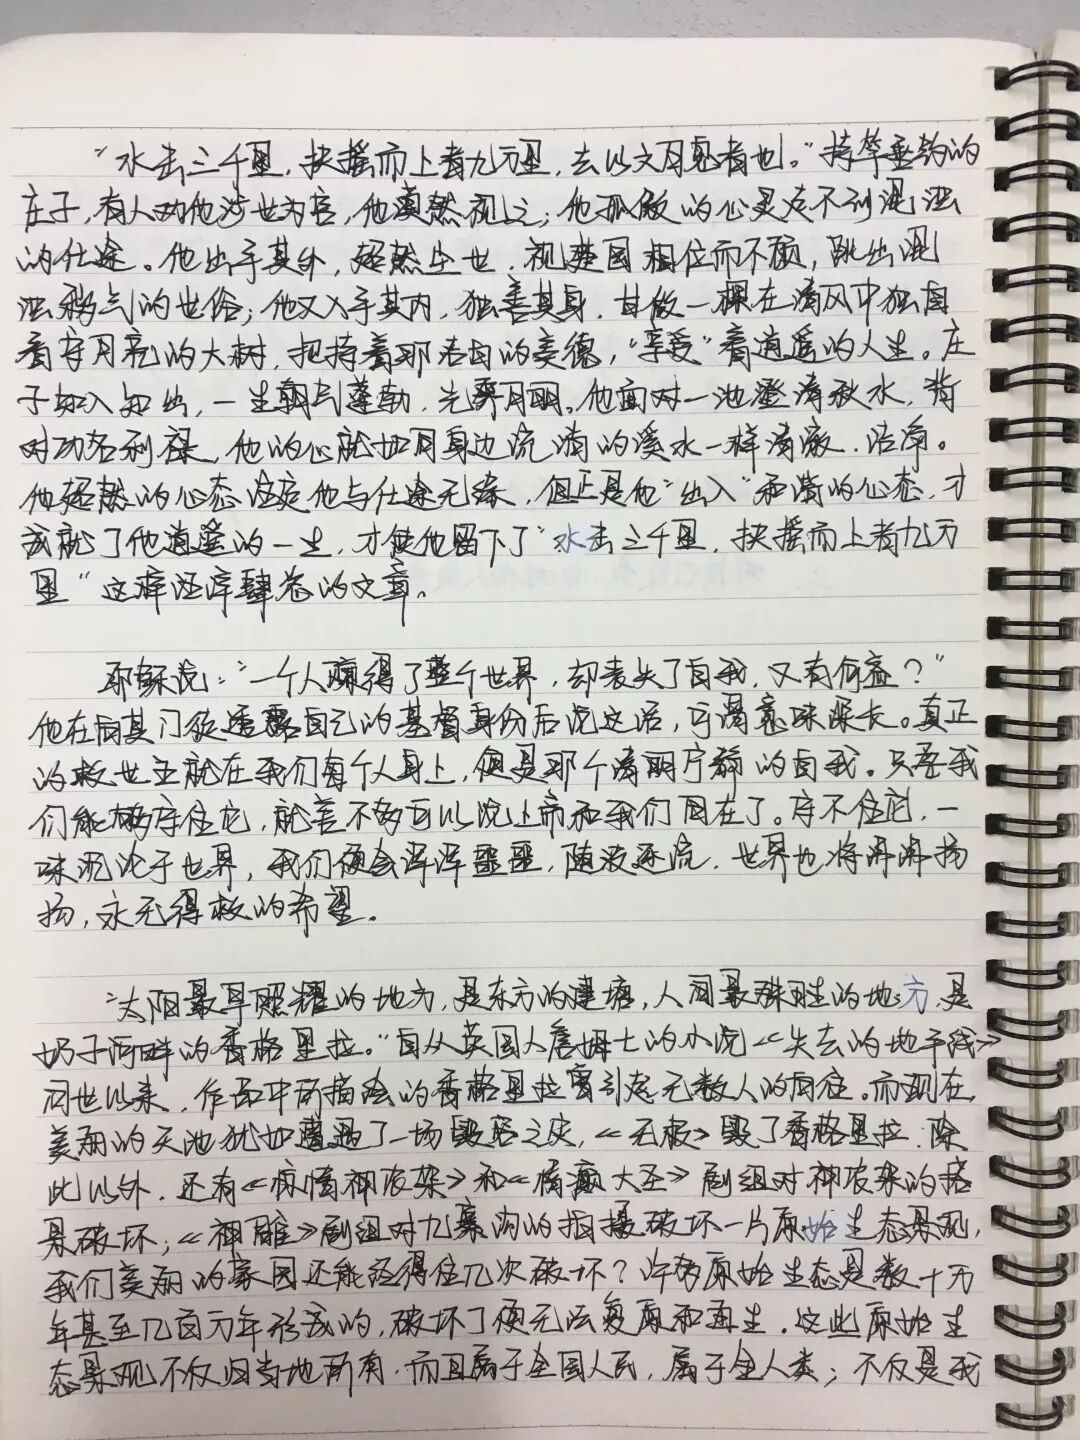 “水击三千里，抟摇而上者九万里，去以六月息者也。”持竿垂钓的
庄子，有人劝他涉世为官，他漠然视之；他孤傲的心灵容不到混浊
的仕途。他出乎其外，超然尘世，视楚国相位而不顾，跳出混
浊秽气的世俗；他又入乎其内，独善其身，甘做一棵在清风中独自
看守月亮的大树，把持着那洁白的美德，“享受”着逍遥的人生。庄
子知入知出，一生朝气蓬勃，光霁月明。他面对一池澄清秋水，背
对功名利禄，他的心就如同身边流淌的溪水一样清澈、洁净。
他超然的心态注定他与仕途无缘，但正是他“出入”和谐的心态，才
成就了他逍遥的一生，才使他留下了“水击三千里，抟摇而上者九万
里”这样汪洋肆恣的文章。
耶稣说：“一个人赚得了整个世界，却丧失了自我，又有何益？”
他在向其门徒透露自己的基督身份后说这话，可谓意味深长。真正
的救世主就在我们每个人身上，便是那个清明宁静的自我。只要我
们能够守住它，就差不多可以说上帝和我们同在了。守不住它，一
味沉沦于世界，我们便会浑浑噩噩，随波逐流，世界也将沸沸扬
扬，永无得救的希望。
“太阳最早照耀的地方，是东方的建塘，人间最殊胜的地方，是
奶子河畔的香格里拉。”自从英国人詹姆士的小说《失去的地平线》
问世以来，作品中所描绘的香格里拉曾引起无数人的向往。而现在，
美丽的天池犹如遭遇了一场毁容之灾，《无极》毁了香格里拉，除
此以外，还有《惊情神农架》和《情癫大圣》剧组对神农架的搭
景破坏；《神雕》剧组对九寨沟的拍摄破坏一片原始生态景观，
我们美丽的家园还能经得住几次破坏？许多原始生态是数十万
年甚至几百万年形成的，破坏了便无法复原和再生，这些原始生
态景观不仅归当地所有，而且属于全国人民，属于全人类；不仅是我